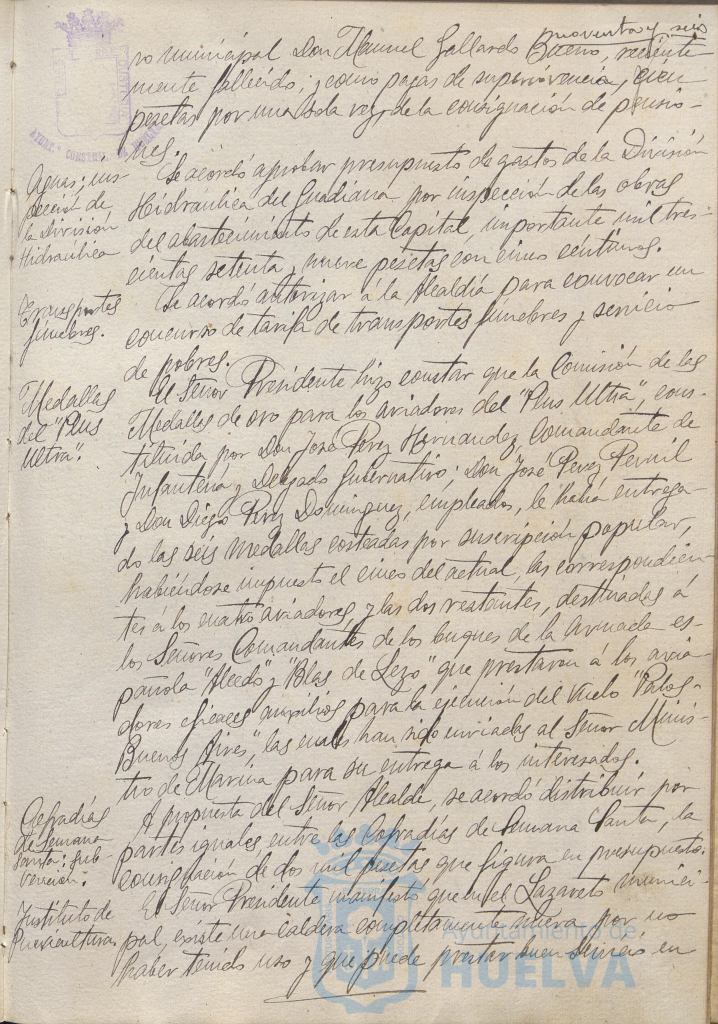 noventa y seis
ro municipal Don Manuel Gallardo Bueno, reciente
mente fallecido; y como pagas de supervivencia, cien
pesetas por una sola vez, de la consignación de pensio-
nes.
Aguas; ins-
pección de
la División
Hidráulica
Se acordó aprobar presupuesto de gastos de la División
Hidraulica del Guadiana por inspección de las obras
del abastecimiento de esta Capital, importante mil tres-
cientas setenta y nueve pesetas con cinco centimos.
Transportes
fúnebres.
Se acordó autorizar á la Alcaldía para convocar un
concurso de tarifa de transportes fúnebres y servicio
de pobres.
Medallas
del "Plus
Ultra".
El Señor Presidente hizo constar que la Comisión de las
Medallas de oro para los aviadores del "Plus Ultra", cons-
tituida por Don José Perez Hernandez, Comandante de
Infantería y Delegado Gubernativo; Don José Perez Pernil
y Don Diego Perez Dominguez, empleados, le había entrega-
do las seis medallas costeadas por suscripción popular,
habiéndose impuesto el cinco del actual, las correspondien-
tes á los cuatro aviadores, y las dos restantes, destinadas á
los Señores Comandantes de los buques de la Armada es-
pañola "Alcedo" y "Blas de Lezo" que prestaron á los avia-
dores eficaces auxilios para la ejecución del vuelo "Palos-
Buenos Aires", las cuales han sido enviadas al Señor Minis-
tro de Marina para su entrega á los interesados.
Cofradías
de Semana
Santa; sub-
vención.
A propuesta del Señor Alcalde, se acordó distribuir por
partes iguales entre las Cofradías de Semana Santa, la
consignación de dos mil pesetas que figura en presupuesto.
Instituto de
Puericultura
El Señor Presidente manifestó que en el Lazareto munici-
pal, existe una caldera completamente nueva por no
haber tenido uso y que puede prestar buen servicio en
Ayuntamiento de
HUELVA